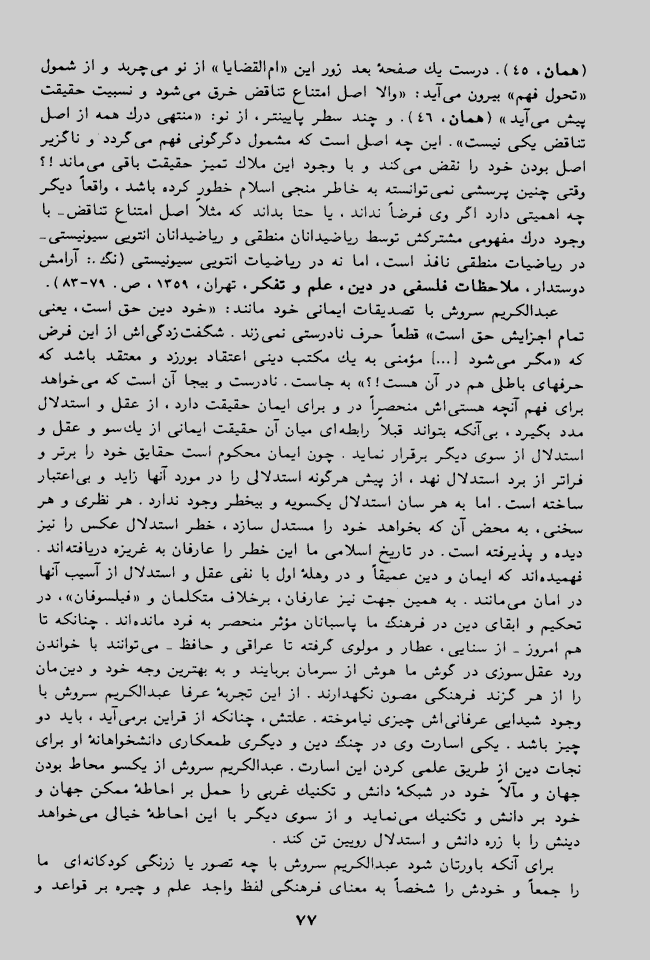 (همان، ٤٥). درست یك صفحهٔ بعد زور این «ام‌القضایا» از نو می‌چربد و از شمول
«تحول فهم» بیرون می‌آید: «والا اصل امتناع تناقض خرق می‌شود و نسبیت حقیقت
پیش می‌آید» (همان، ٤٦). و چند سطر پایینتر، از نو: «منتهی درك همه از اصل
تناقض یکی نیست». این چه اصلی است که مشمول دگرگونی فهم می‌گردد و ناگزیر
اصل بودن خود را نقض می‌کند و با وجود این ملاك تمیز حقیقت باقی می‌ماند!؟
وقتی چنین پرسشی نمی‌توانسته به خاطر منجی اسلام خطور کرده باشد، واقعاً دیگر
چه اهمیتی دارد اگر وی فرضاً نداند، یا حتا بداند که مثلاً اصل امتناع تناقض ـ با
وجود درك مفهومی مشترکش توسط ریاضیدانان منطقی و ریاضیدانان انتویی سیونیستی ـ
در ریاضیات منطقی نافذ است، اما نه در ریاضیات انتویی سیونیستی (نگ.: آرامش
دوستدار، ملاحظات فلسفی در دین، علم و تفکر، تهران، ١٣٥٩، ص. ٧٩-٨٣).
عبدالکریم سروش با تصدیقات ایمانی خود مانند: «خود دین حق است، یعنی
تمام اجزایش حق است» قطعاً حرف نادرستی نمی‌زند. شگفت‌زدگی‌اش از این فرض
که «مگر می‌شود [...] مؤمنی به یك مکتب دینی اعتقاد بورزد و معتقد باشد که
حرفهای باطلی هم در آن هست!؟» به جاست. نادرست و بیجا آن است که می‌خواهد
برای فهم آنچه هستی‌اش منحصراً در و برای ایمان حقیقت دارد، از عقل و استدلال
مدد بگیرد، بی‌آنکه بتواند قبلاً رابطه‌ای میان آن حقیقت ایمانی از یك‌سو و عقل و
استدلال از سوی دیگر برقرار نماید. چون ایمان محکوم است حقایق خود را برتر و
فراتر از برد استدلال نهد، از پیش هرگونه استدلالی را در مورد آنها زاید و بی‌اعتبار
ساخته است. اما به هر سان استدلال یکسویه و بیخطر وجود ندارد. هر نظری و هر
سخنی، به محض آن که بخواهد خود را مستدل سازد، خطر استدلال عکس را نیز
دیده و پذیرفته است. در تاریخ اسلامی ما این خطر را عارفان به غریزه دریافته‌اند.
فهمیده‌اند که ایمان و دین عمیقاً و در وهلهٔ اول با نفی عقل و استدلال از آسیب آنها
در امان می‌مانند. به همین جهت نیز عارفان، برخلاف متکلمان و «فیلسوفان»، در
تحکیم و ابقای دین در فرهنگ ما پاسبانان مؤثر منحصر به فرد مانده‌اند. چنانکه تا
هم امروز ـ از سنایی، عطار و مولوی گرفته تا عراقی و حافظ ـ می‌توانند با خواندن
ورد عقل‌سوزی در گوش ما هوش از سرمان بربایند و به بهترین وجه خود و دین‌مان
را از هر گزند فرهنگی مصون نگهدارند. از این تجربهٔ عرفا عبدالکریم سروش با
وجود شیدایی عرفانی‌اش چیزی نیاموخته. علتش، چنانکه از قراین برمی‌آید، باید دو
چیز باشد. یکی اسارت وی در چنگ دین و دیگری طمعکاری دانشخواهانهٔ او برای
نجات دین از طریق علمی کردن این اسارت. عبدالکریم سروش از یکسو محاط بودن
جهان و مآلاً خود در شبکهٔ دانش و تکنیك غربی را حمل بر احاطهٔ ممکن جهان و
خود بر دانش و تکنیك می‌نماید و از سوی دیگر با این احاطهٔ خیالی می‌خواهد
دینش را با زره دانش و استدلال رویین تن کند.
برای آنکه باورتان شود عبدالکریم سروش با چه تصور یا زرنگی کودکانه‌ای ما
را جمعاً و خودش را شخصاً به معنای فرهنگی لفظ واجد علم و چیره بر قواعد و
٧٧